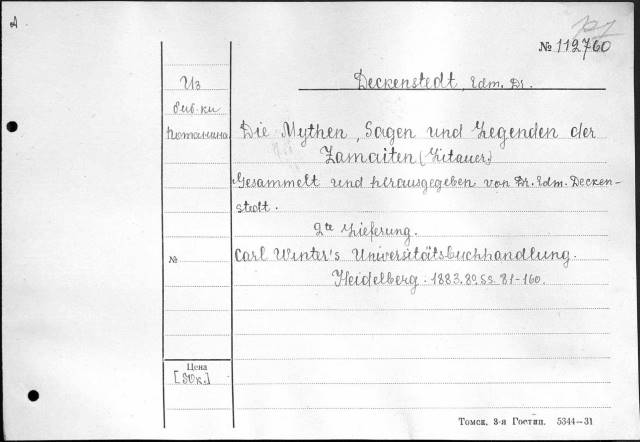 A
№ 112760
Из
Deckenstedt, Edm. Dr.
биб-ки
Потанина
Die Mythen, Sagen und Legenden der
Zamaiten (Litauer)
Gesammelt und herausgegeben von Dr. Edm. Decken-
stedt.
2te Lieferung.
№
Carl Winter's Universitätsbuchhandlung.
Heidelberg. 1883. 8º. SS. 81-160.
Цена
Томск. 3-я Гостип. 5344—31